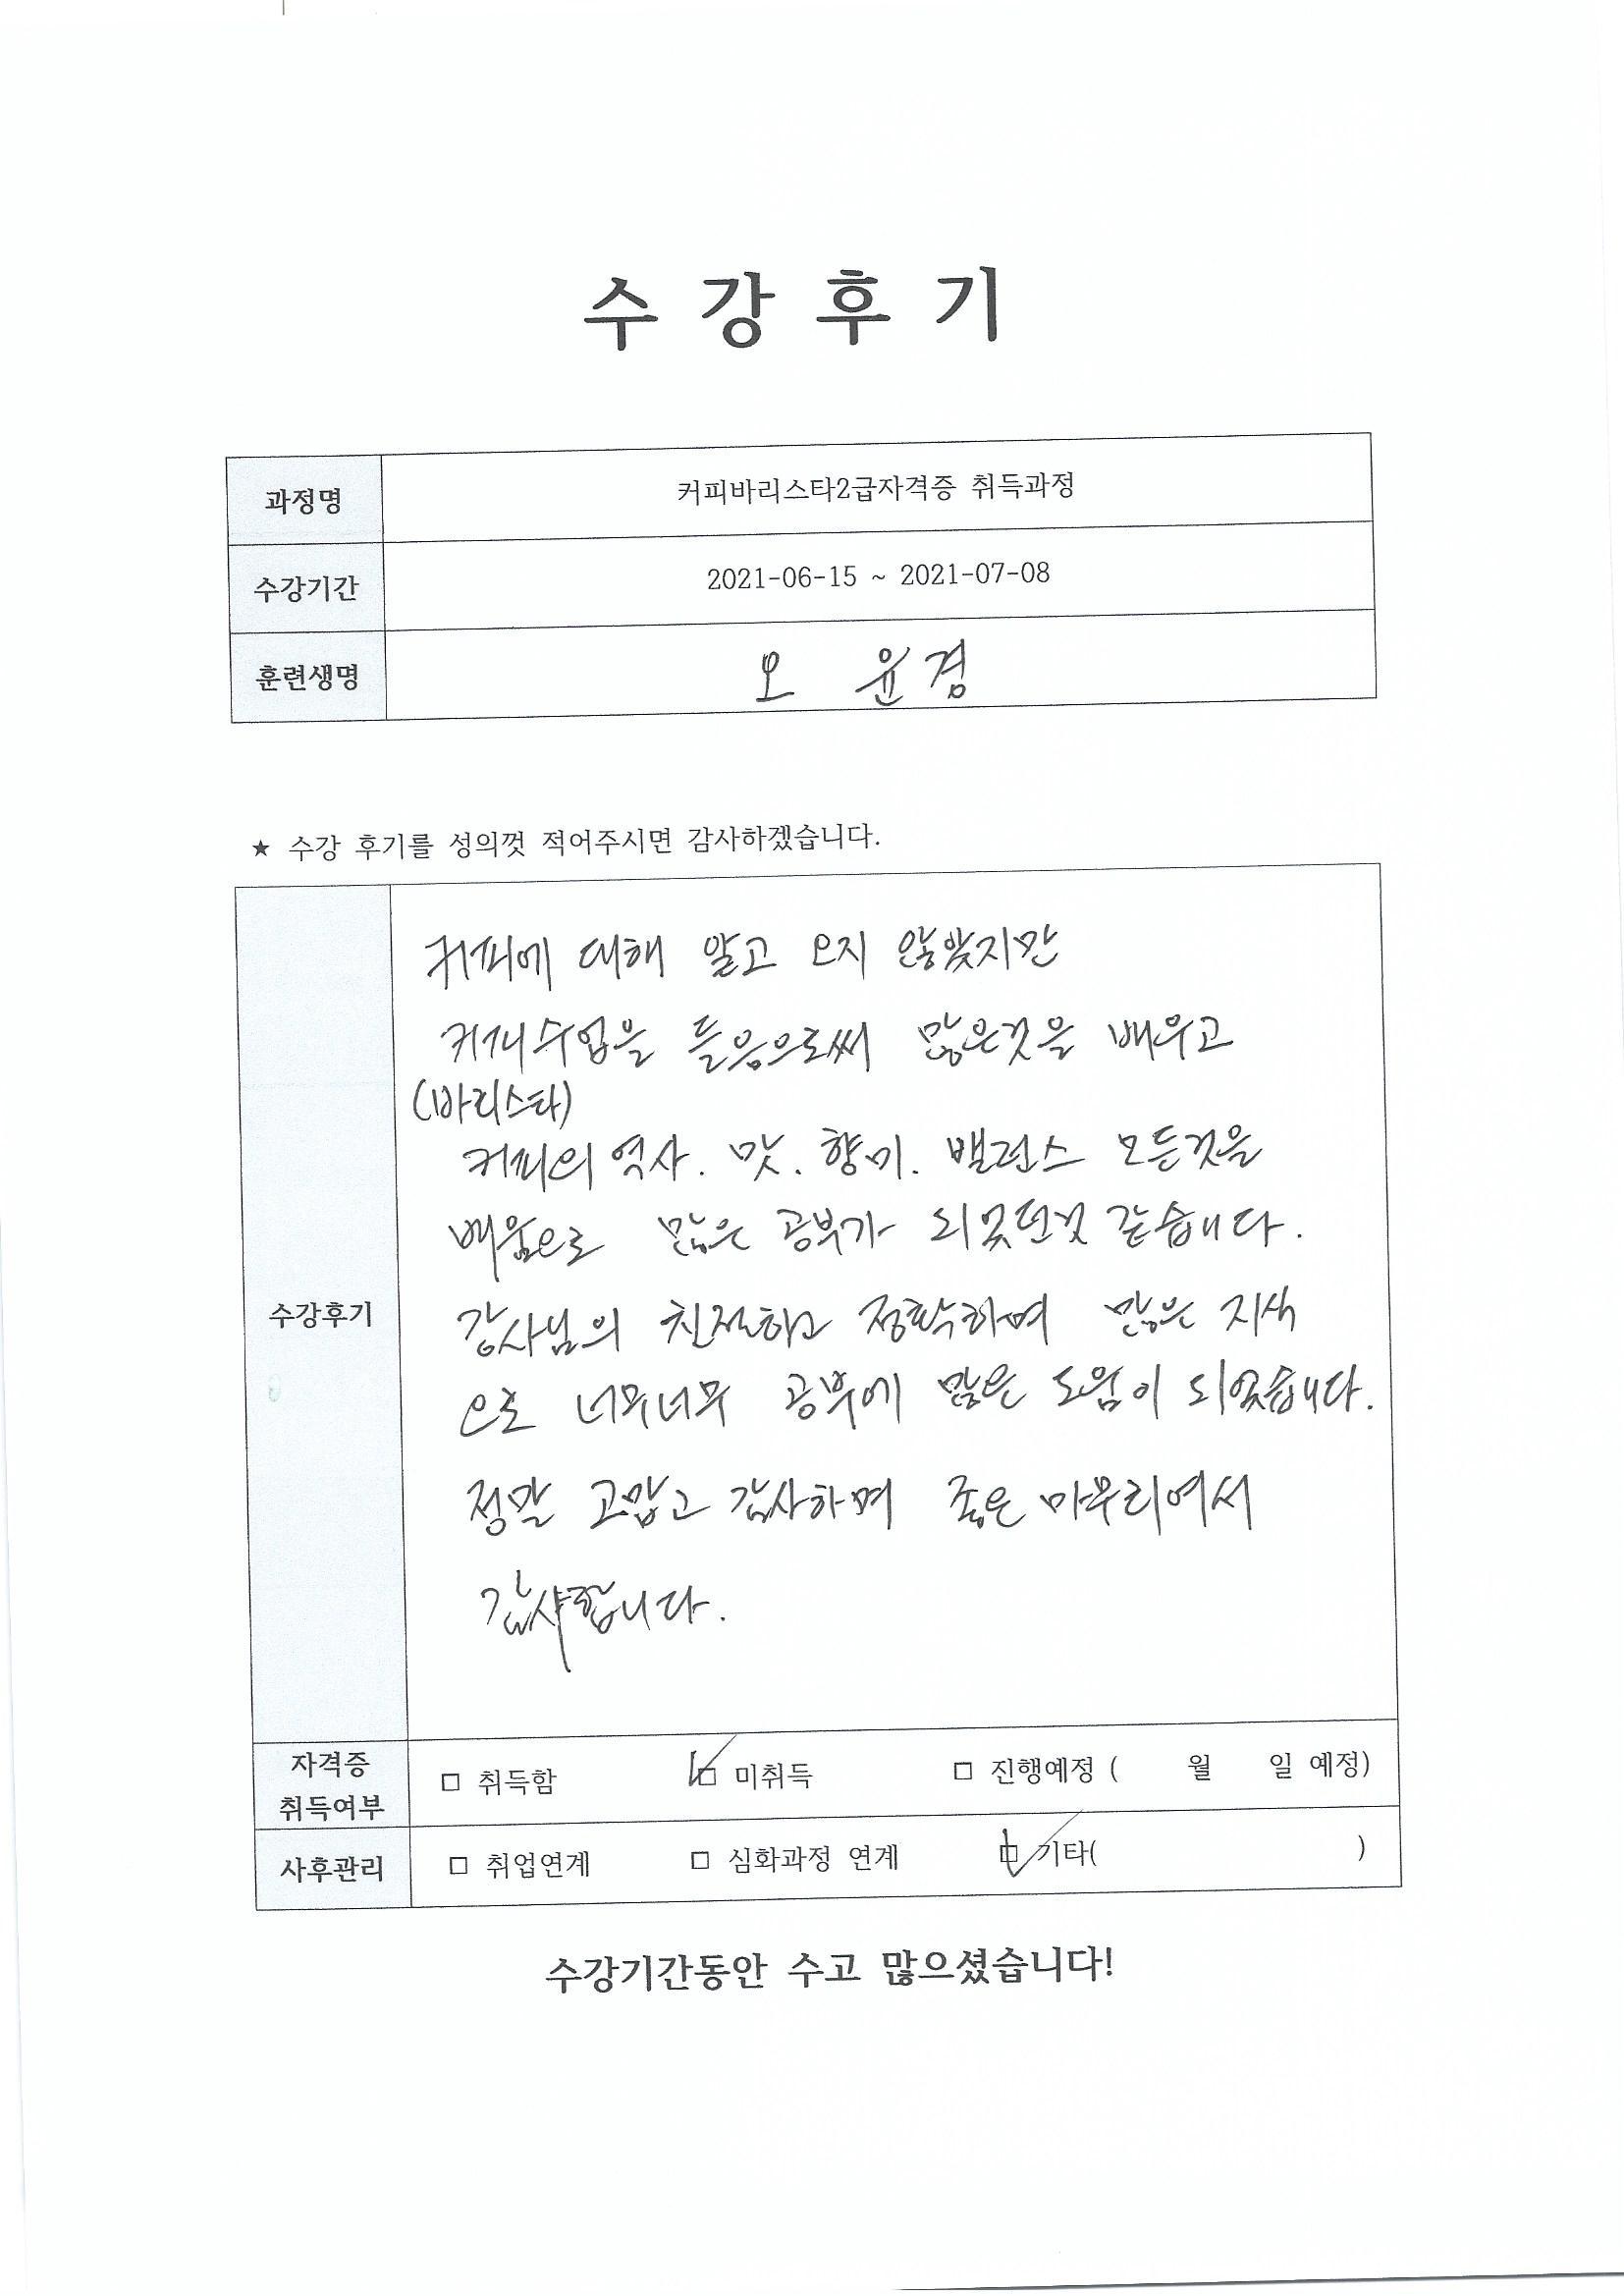 수 강 후 기
과정명 커피바리스타2급자격증 취득과정
수강기간 2021-06-15 ~ 2021-07-08
훈련생명 오 윤경
★ 수강 후기를 성의껏 적어주시면 감사하겠습니다.
수강후기
커피에 대해 알고 오지 않았지만
커피수업을 들음으로써 많은것을 배우고
(바리스타)
커피의 역사. 맛. 향미. 밸런스 모든것을
배움으로 많은 공부가 되었던것 같습니다.
강사님의 친절하고 정확하며 많은 지식
으로 너무너무 공부에 많은 도움이 되었습니다.
정말 고맙고 감사하며 좋은 마무리여서
감사합니다.
자격증 취득여부 □ 취득함 □ 미취득 □ 진행예정 ( 월 일 예정)
사후관리 □ 취업연계 □ 심화과정 연계 □ 기타( )
수강기간동안 수고 많으셨습니다!